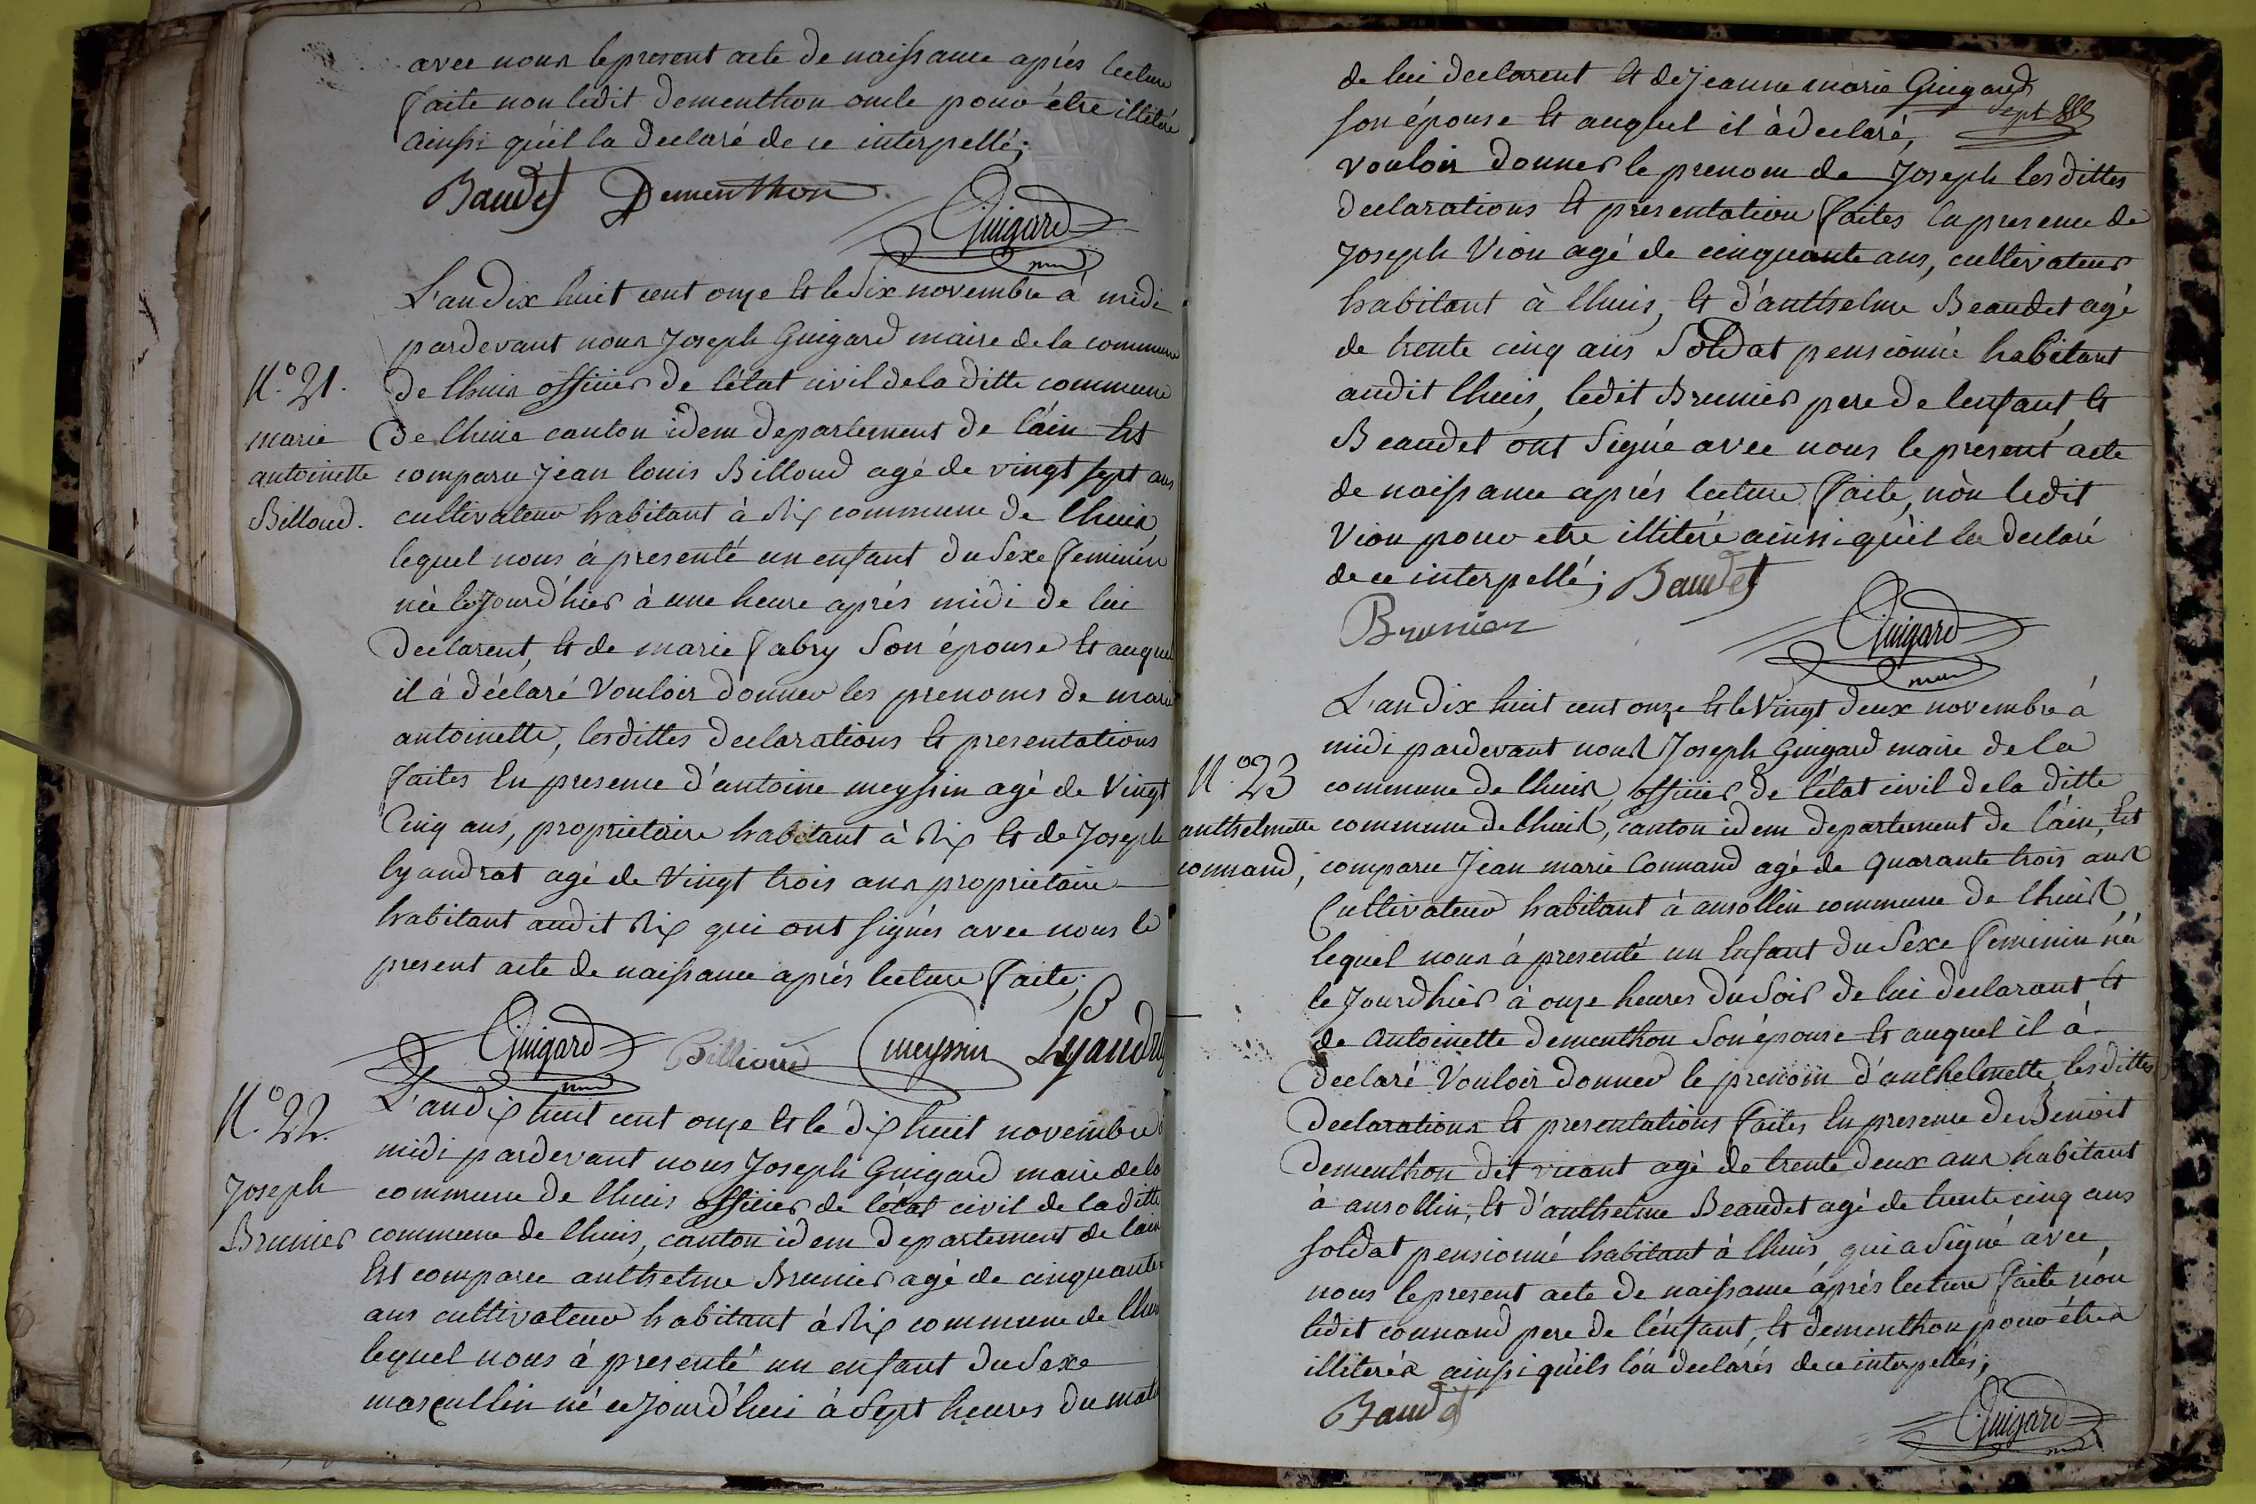 avec nous le present acte de naissance aprés lecture
faite non ledit dementhon oncle pour être illiteré
ainsi qu'il la declaré de ce interpellé;
Baudet Dementhon
Guigard
L'an dix huit cent onze et le six novembre à midi
pardevant nous Joseph Guigard maire de la commune
N.º 21. de lhuis officier de l'état civil de la ditte commune
marie de lhuis canton idem departement de l'ain est
antoinette comparu jean louis Billoud agé de vingt sept ans
Billoud. cultivateur habitant à Rix commune de lhuis,
lequel nous à presenté un enfant du sexe feminin
née le jourd'hier à une heure aprés midi de lui
declarent, et de marie fabry son épouse et auquel
il à déclaré vouloir donner les prenoms de marie
antoinette, lesdittes declarations et presentations
faites en presence d'antoine meyssin agé de vingt
cinq ans, proprietaire habitant à Rix et de Joseph
lyandrat agé de vingt trois ans proprietaire
habitant audit Rix qui ont signés avec nous le
present acte de naissance aprés lecture faite;
Guigard Billioud meyssin Lyandra
N.º 22. L'an dix huit cent onze et le dix huit novembre à
midi pardevant nous Joseph Guigard maire de la
Joseph commune de lhuis officier de l'état civil de la ditte
Brunier commune de lhuis, canton idem departement de lain
Est comparu anthelme Brunier agé de cinquante
ans cultivateur habitant à Rix commune de lhuis
lequel nous à presenté un enfant du sexe
mascullin né cejourd'hui à sept heures du matin
de lui declarent et de jeanne marie Guigard
son épouse et auquel il à declaré,
vouloir donner le prenom de Joseph les dittes
declarations et presentation faites en presence de
Joseph Vion agé de cinquante ans, cultivateur
habitant à lhuis, et d'anthelme Beaudet agé
de trente cinq ans soldat pensionné habitant
audit lhuis, ledit Brunier pere de lenfant, et
Beaudet ont signé avec nous le présent acte
de naissance aprés lecture faite, nòn ledit
Vion pour etre illiteré ainsi qu'il la declaré
de ce interpellé; Baudet
Brunier
Guigard
L'an dix huit cent onze et le vingt deux novembre à
midi pardevant nous Joseph Guigard maire de la
N.º 23 commune de lhuis, officier de l'état civil de la ditte
anthelmette commune de lhuis, canton idem departement de l'ain, Est
connand, comparu Jean marie Connand agé de quarante trois ans
Cultivateur habitant à ansollin commune de lhuis
lequel nous à presenté un Enfant du sexe feminin né
le jourdhier à onze heures du soir de lui declarant et
de antoinette dementhon son épouse et auquel il à
declaré vouloir donner le prenom d'anthelmette lesdittes
declarations et presentations faites en presence de Benoit
dementhon dit agé de trente deux ans habitant
à ansollin, et d'anthelme Beaudet agé de trente cinq ans
soldat pensionné habitant à lhuis, qui a signé avec
nous le present acte de naissance aprés lecture faite, nòn
ledit connand pere de l'énfant, et dementhon pour étres
illiterés ainsi qu'ils lón declarés de ce interpellés;
Baudet
Guigard